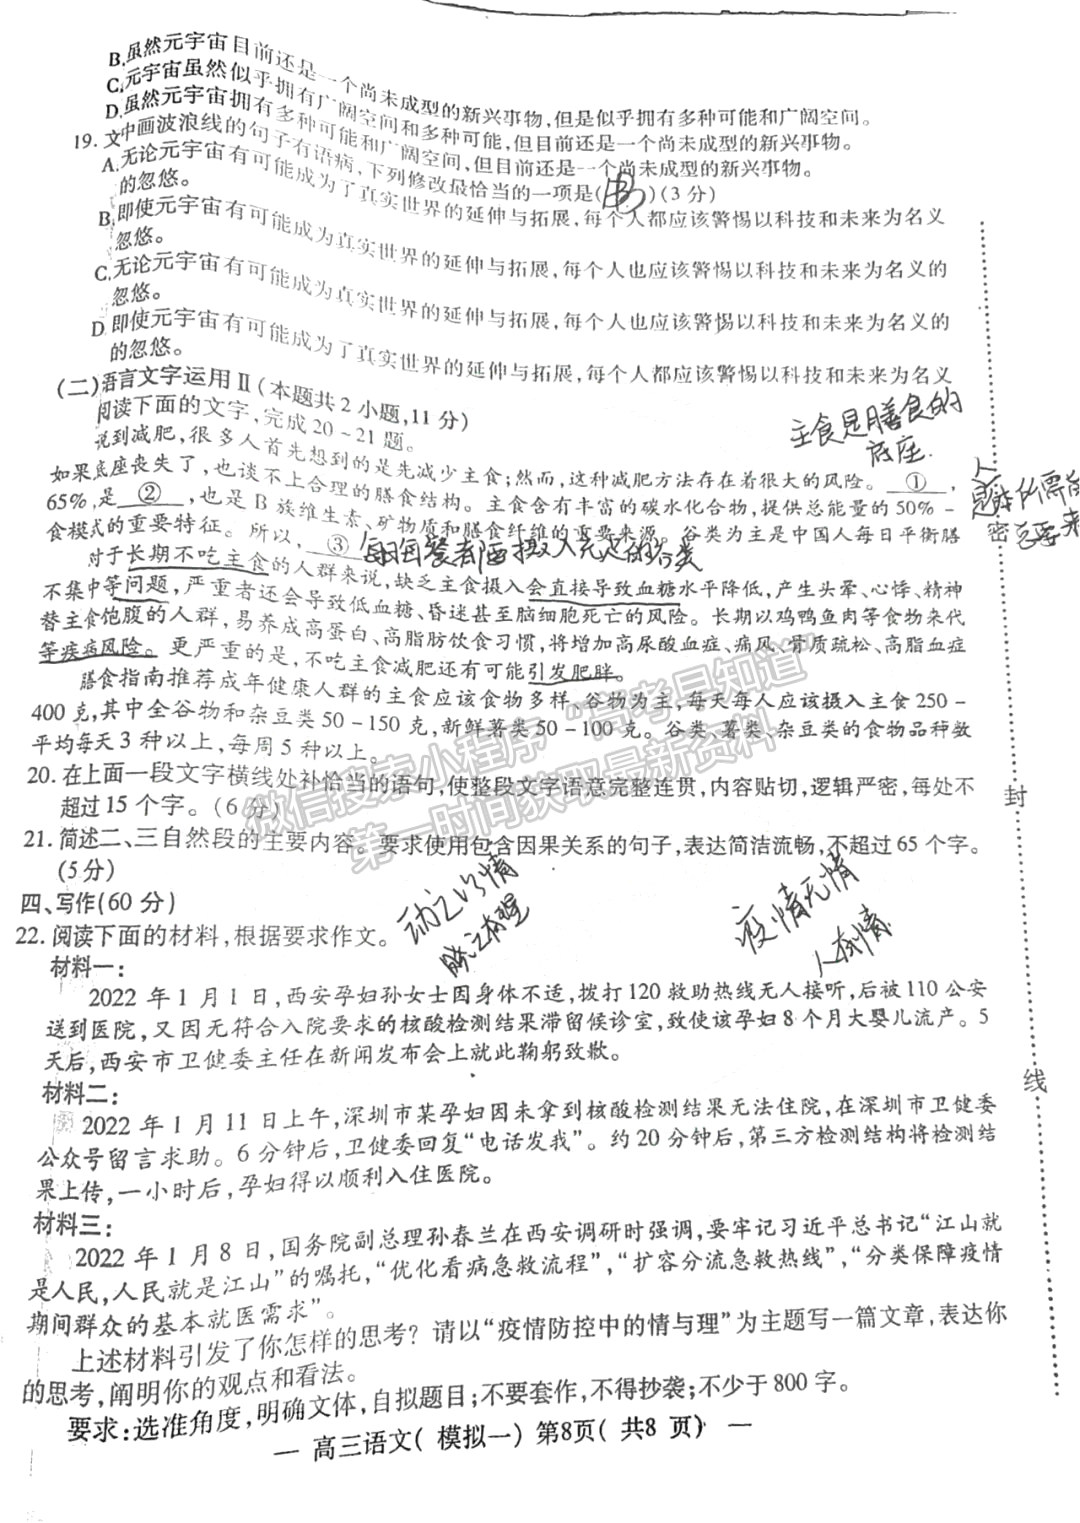 B.虽然元宇宙目前还是一个尚未成型的新兴事物,但是似乎拥有多种可能和广阔空间。
C.元宇宙虽然似乎拥有广阔空间和多种可能,但目前还是一个尚未成型的新兴事物。
D.虽然元宇宙拥有多种可能和广阔空间,但目前还是一个尚未成型的新兴事物。
19.文中画波浪线的句子有语病,下列修改最恰当的一项是( B )(3分)
A.无论元宇宙有可能成为了真实世界的延伸与拓展,每个人都应该警惕以科技和未来为名义
的忽悠。
B.即使元宇宙有可能成为真实世界的延伸与拓展,每个人也应该警惕以科技和未来为名义的
忽悠。
C.无论元宇宙有可能成为真实世界的延伸与拓展,每个人也应该警惕以科技和未来为名义的
忽悠。
D.即使元宇宙有可能成为了真实世界的延伸与拓展,每个人都应该警惕以科技和未来为名义
的忽悠。
(二)语言文字运用Ⅱ(本题共2小题,11分)
阅读下面的文字,完成20-21题。
主食是膳食的
底座.
说到减肥,很多人首先想到的是先减少主食;然而,这种减肥方法存在着很大的风险。 ① ,
如果底座丧失了,也谈不上合理的膳食结构。主食含有丰富的碳水化合物,提供总能量的50%-
65%,是 ② ,也是B族维生素、矿物质和膳食纤维的重要来源。谷类为主是中国人每日平衡膳
食模式的重要特征。所以, ③
对于长期不吃主食的人群来说,缺乏主食摄入会直接导致血糖水平降低,产生头晕、心悸、精神
不集中等问题,严重者还会导致低血糖、昏迷甚至脑细胞死亡的风险。长期以鸡鸭鱼肉等食物来代
替主食饱腹的人群,易养成高蛋白、高脂肪饮食习惯,将增加高尿酸血症、痛风、骨质疏松、高脂血症
等疾病风险。更严重的是,不吃主食减肥还有可能引发肥胖。
膳食指南推荐成年健康人群的主食应该食物多样,谷物为主,每天每人应该摄入主食250-
400克,其中全谷物和杂豆类50-150克,新鲜薯类50-100克。谷类、薯类、杂豆类的食物品种数
平均每天3种以上,每周5种以上。
20.在上面一段文字横线处补恰当的语句,使整段文字语意完整连贯,内容贴切,逻辑严密,每处不
超过15个字。(6分)
21.简述二、三自然段的主要内容。要求使用包含因果关系的句子,表达简洁流畅,不超过65个字。
(5分)
四、写作(60分)
动之以情
疫情无情
人有情
22.阅读下面的材料,根据要求作文。
材料一:
2022年1月1日,西安孕妇孙女士因身体不适,拨打120救助热线无人接听,后被110公安
送到医院,又因无符合入院要求的核酸检测结果滞留候诊室,致使该孕妇8个月大婴儿流产。5
天后,西安市卫健委主任在新闻发布会上就此鞠躬致歉。
材料二:
2022年1月11日上午,深圳市某孕妇因未拿到核酸检测结果无法住院,在深圳市卫健委
公众号留言求助。6分钟后,卫健委回复“电话发我”。约20分钟后,第三方检测结构将检测结
果上传,一小时后,孕妇得以顺利入住医院。
材料三:
2022年1月8日,国务院副总理孙春兰在西安调研时强调,要牢记习近平总书记“江山就
是人民,人民就是江山”的嘱托,“优化看病急救流程”,“扩容分流急救热线”,“分类保障疫情
期间群众的基本就医需求”。
上述材料引发了你怎样的思考?请以“疫情防控中的情与理”为主题写一篇文章,表达你
的思考,阐明你的观点和看法。
要求:选准角度,明确文体,自拟题目;不要套作,不得抄袭;不少于800字。
— 高三语文( 模拟一) 第8页( 共8页) —
密
封
线
微信搜索小程序“高考早知道”
第一时间获取最新资料